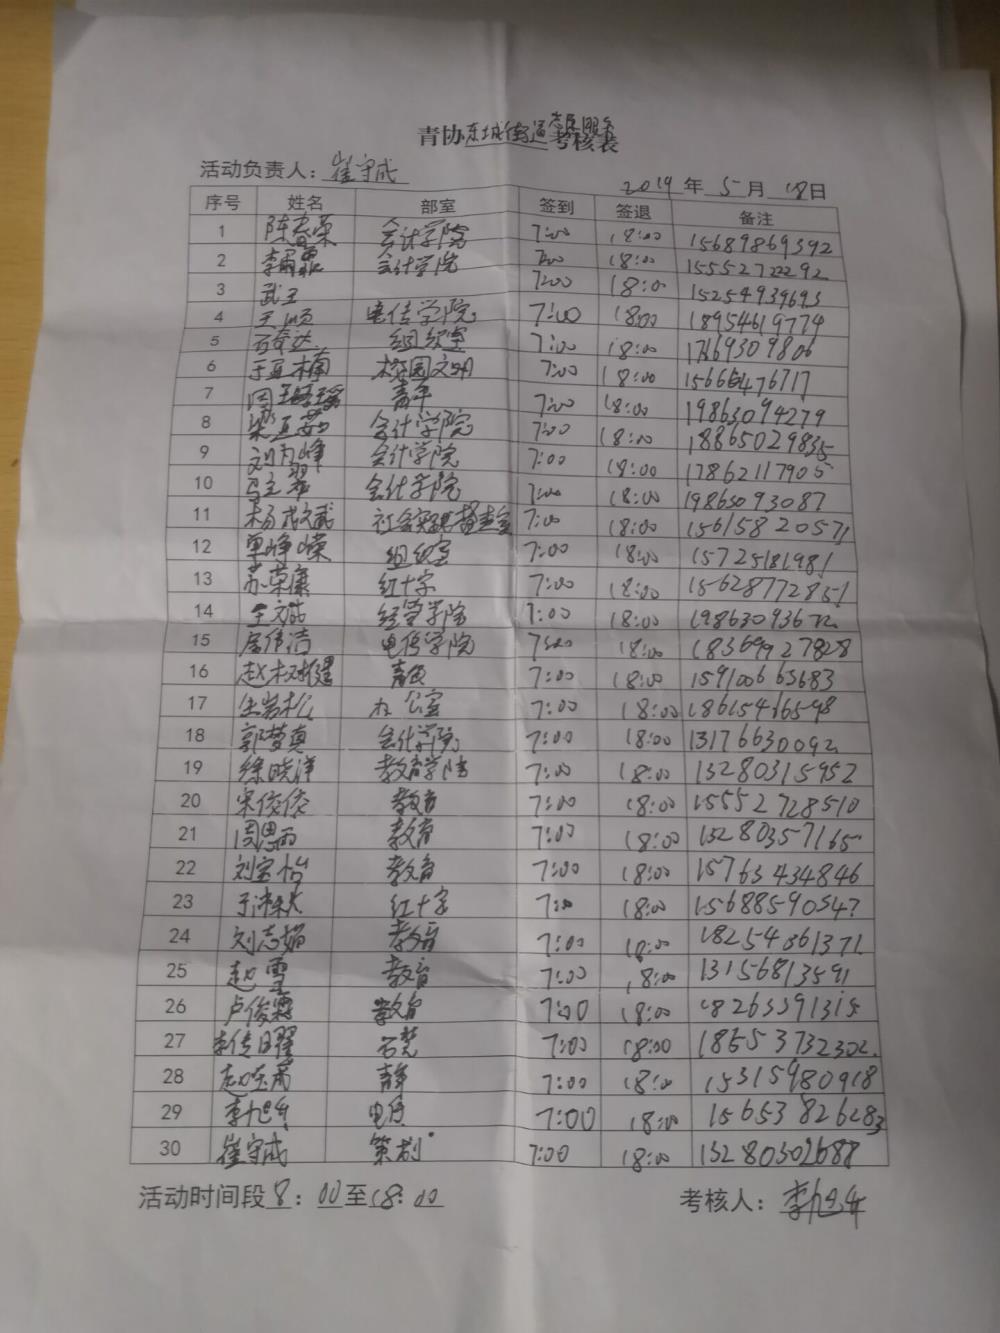 青协东城街道志愿服务考核表
活动负责人：崔守成
2019年5月18日
序号 姓名 部室 签到 签退 备注
1 陈春荣 会计学院 7:00 18:00 15689869392
2 会计学院 7:00 18:00 15552722292
3 武王 7:00 18:00 15254939693
4 王顺 电信学院 7:00 18:00 18954619774
5 石奇达 组织室 7:00 18:00
6 于亚楠 校园文明 7:00 18:00
7 青年 7:00 18:00 19863094279
8 梁亚茹 会计学院 7:00 18:00 18865029835
9 刘丙峰 会计学院 7:00 18:00 17862117905
10 马立翠 会计学院 7:00 18:00 19863093087
11 杨成斌 7:00 18:00 15615820571
12 单峥嵘 组织室 7:00 18:00 15725181981
13 苏荣廉 红十字 7:00 18:00 15628772851
14 王文哉 经管学院 7:00 18:00
15 屈伟洁 电信学院 7:00 18:00 18369927828
16 7:00 18:00 15910065683
17 生岩松 办公室 7:00 18:00 18615416598
18 郭梦真 会计学院 7:00 18:00 13176630092
19 徐晓洋 教育学院 7:00 18:00 13280315952
20 宋俊俊 教育 7:00 18:00 15552728510
21 周思雨 教育 7:00 18:00 13280357165
22 刘宝怡 教育 7:00 18:00 15763434846
23 红十字 7:00 18:00 15688590547
24 刘志娟 教育 7:00 18:00 18254861371
25 赵雪 教育 7:00 18:00 13156813591
26 卢俊霖 教育 7:00 18:00 18265391315
27 李传日曜 7:00 18:00 18653732302
28 7:00 18:00 15315980918
29 李旭年 电信 7:00 18:00 15653826283
30 崔守成 策划 7:00 18:00 13280302688
活动时间段8：00至18：00
考核人：李旭年